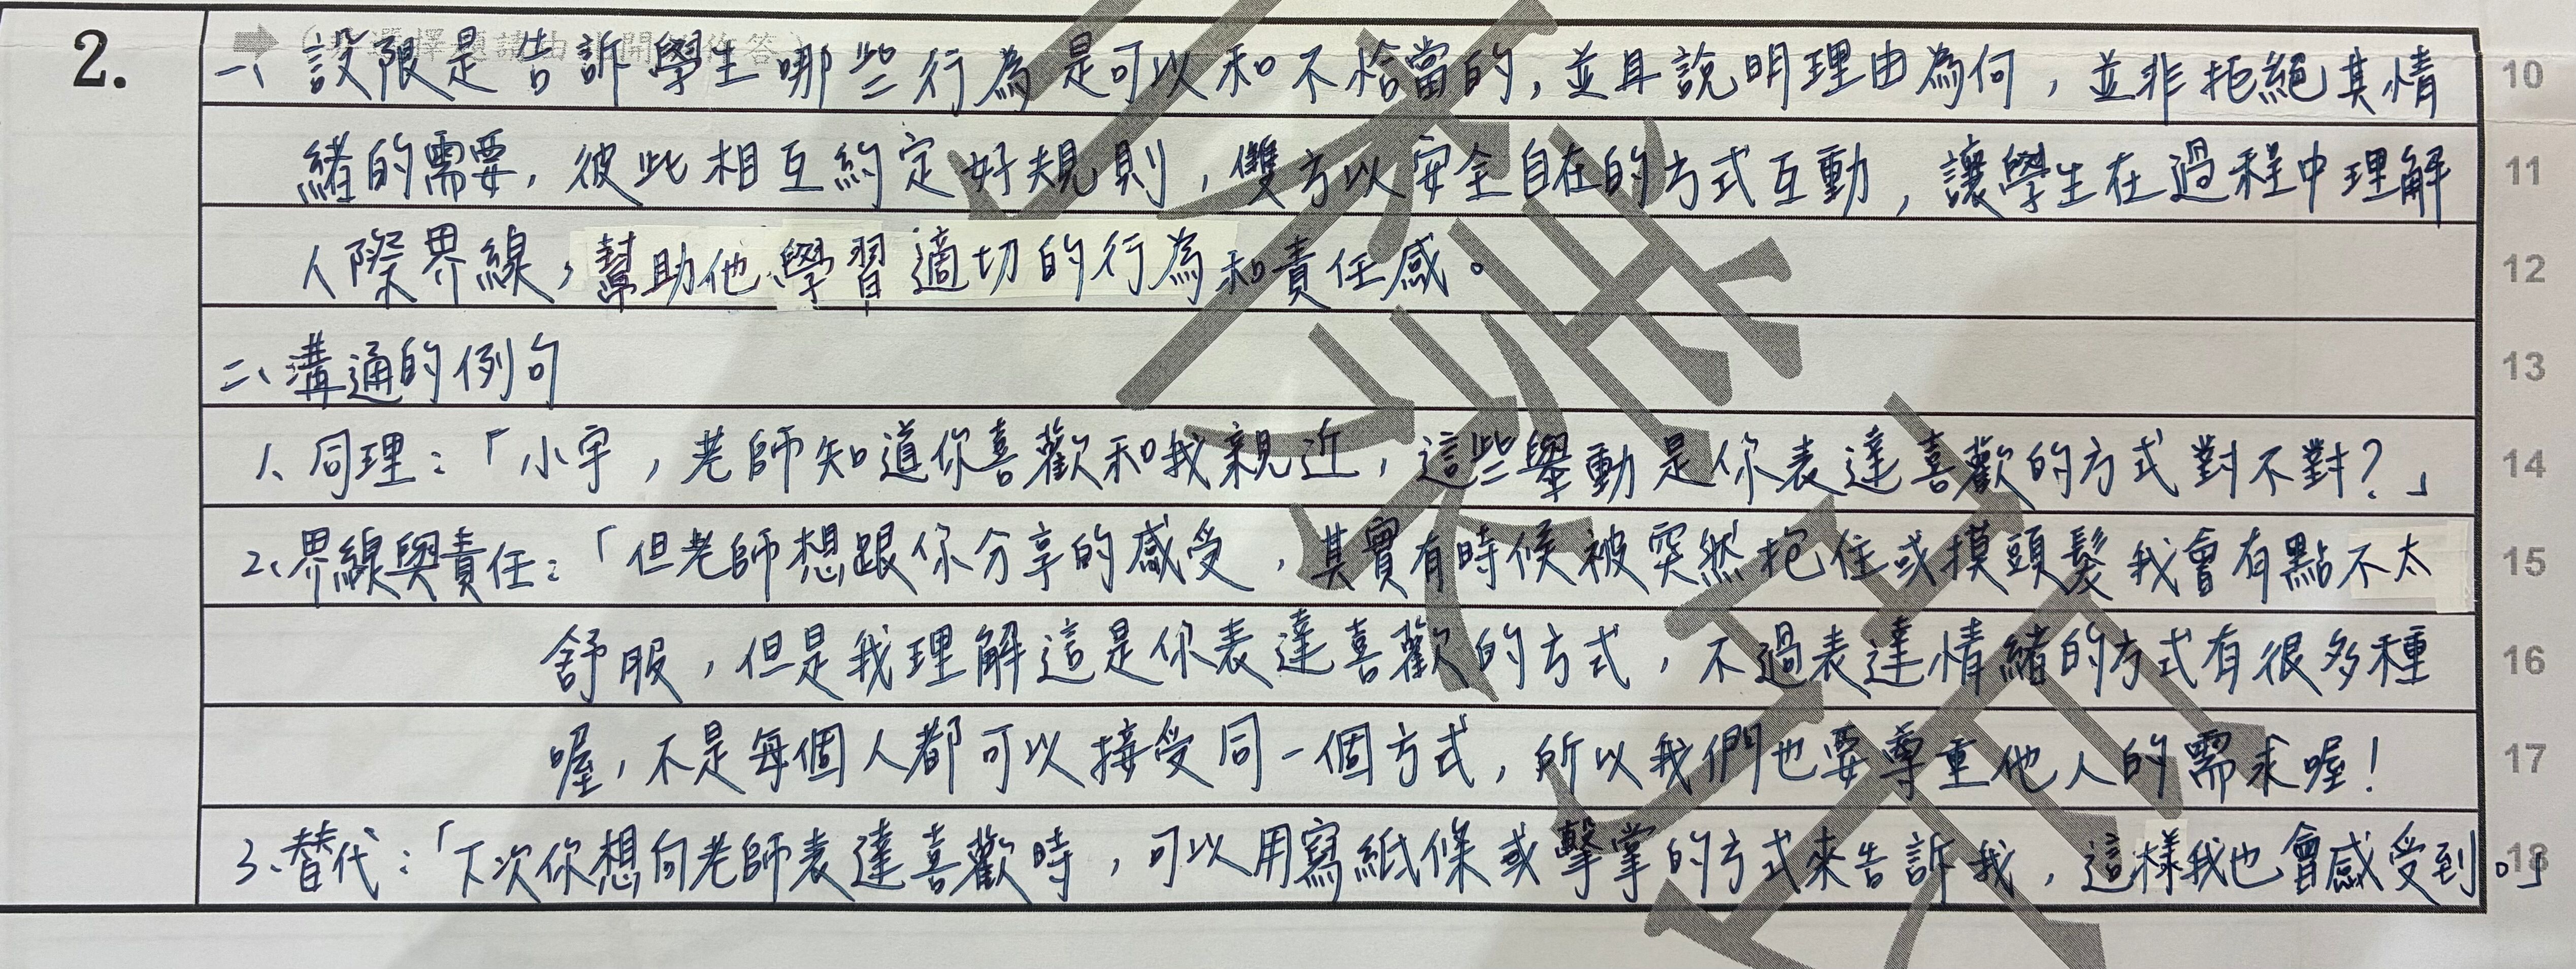 2.
一、設限是告訴學生哪些行為是可以和不恰當的，並且說明理由為何，並非拒絕其情 10
緒的需要，彼此相互約定好規則，雙方以安全自在的方式互動，讓學生在過程中理解 11
人際界線，幫助他學習適切的行為和責任感。 12
二、溝通的例句 13
1、同理：「小宇，老師知道你喜歡和我親近，這些舉動是你表達喜歡的方式對不對？」 14
2、界線與責任：「但老師想跟你分享的感受，其實有時候被突然抱住或摸頭髮我會有點不太 15
舒服，但是我理解這是你表達喜歡的方式，不過表達情緒的方式有很多種 16
喔，不是每個人都可以接受同一個方式，所以我們也要尊重他人的需求喔！ 17
3、替代：「下次你想向老師表達喜歡時，可以用寫紙條或擊掌的方式來告訴我，這樣我也會感受到。」 18